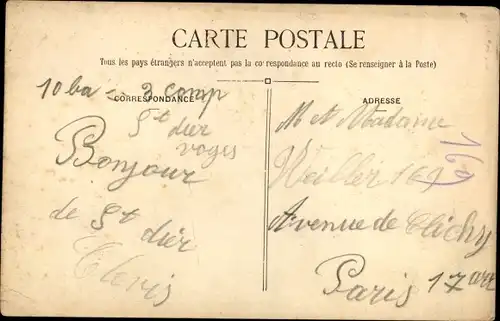 CARTE POSTALE
Tous les pays étrangers n'acceptent pas la correspondance au recto (Se renseigner à la Poste)
CORRESPONDANCE
10 ba 3 comp
St dier
voges
Bonjour
de St dier
ADRESSE
M et Madame
169
Avenue de Clichy
Paris 17 arr
169